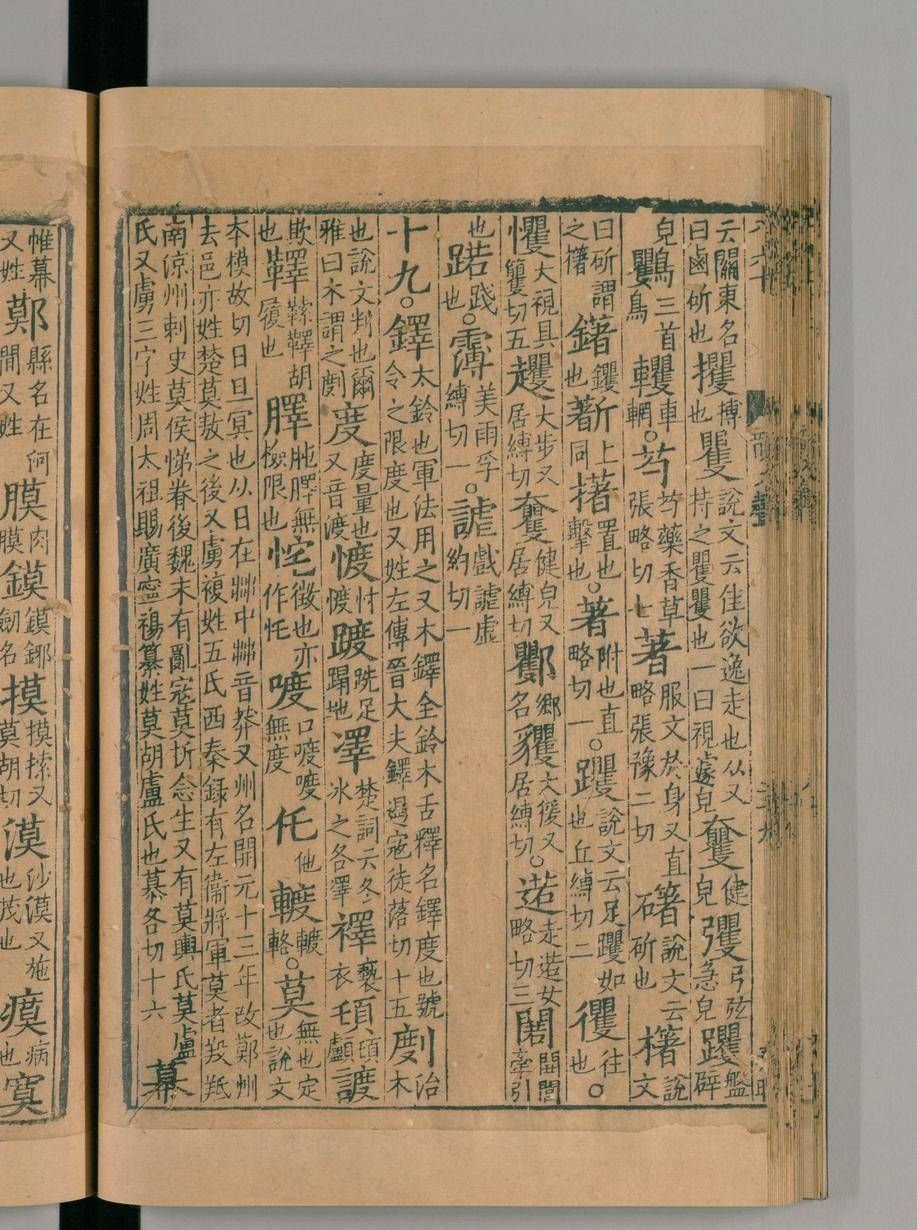 云關東名曰鹵斫也攫搏也矍說文云隹欲逸走也从又持之矍矍也一曰視遽皃健皃彏弓弦急皃躩盤辟
皃三首鳥車輞○芍芍藥香草張略切七著服文於身又直略張豫二切斫也箸說文云櫡說文
曰斫謂之櫡鐯钁也斮上同擆置也擊也○著附也直略切一○躩說文云足躩如也丘縛切二往也○
戄大視具籰切五趯大步又居縛切健皃又居縛切鄉名玃大猨又居縛切○逽走逽女略切三開牽引
也踐也○美雨孚縛切一○謔戲謔虛約切一
十九○鐸大鈴也軍法用之又木鐸金鈴木舌釋名鐸度也號令之限度也又姓左傳晉大夫鐸遏寇徒落切十五剫治木
也說文判也爾雅曰木謂之剫度度量也又音渡㥀忖㥀踱跣足蹋地凙楚詞云冬冰之各凙襗褻衣
欺也履也無檢限也微也亦作喥口喥喥無度仛他輅○莫無也定也說文
本模故切日旦冥也从日在茻中茻音莽又州名開元十三年改鄚州去邑亦姓楚莫敖之後又虜複姓五氏西秦録有左衛將軍莫者羖羝
南涼州刺史莫侯悌眷後魏末有亂寇莫折念生又有莫輿氏莫盧氏又虜三字姓周太祖賜廣寧楊纂姓莫胡盧氏也慕各切十六幕
帷幕又姓鄚縣名在河間又姓膜肉膜鏌鏌鋣劒名摸摸又莫胡切漠沙漠又也茂也瘼病也寞